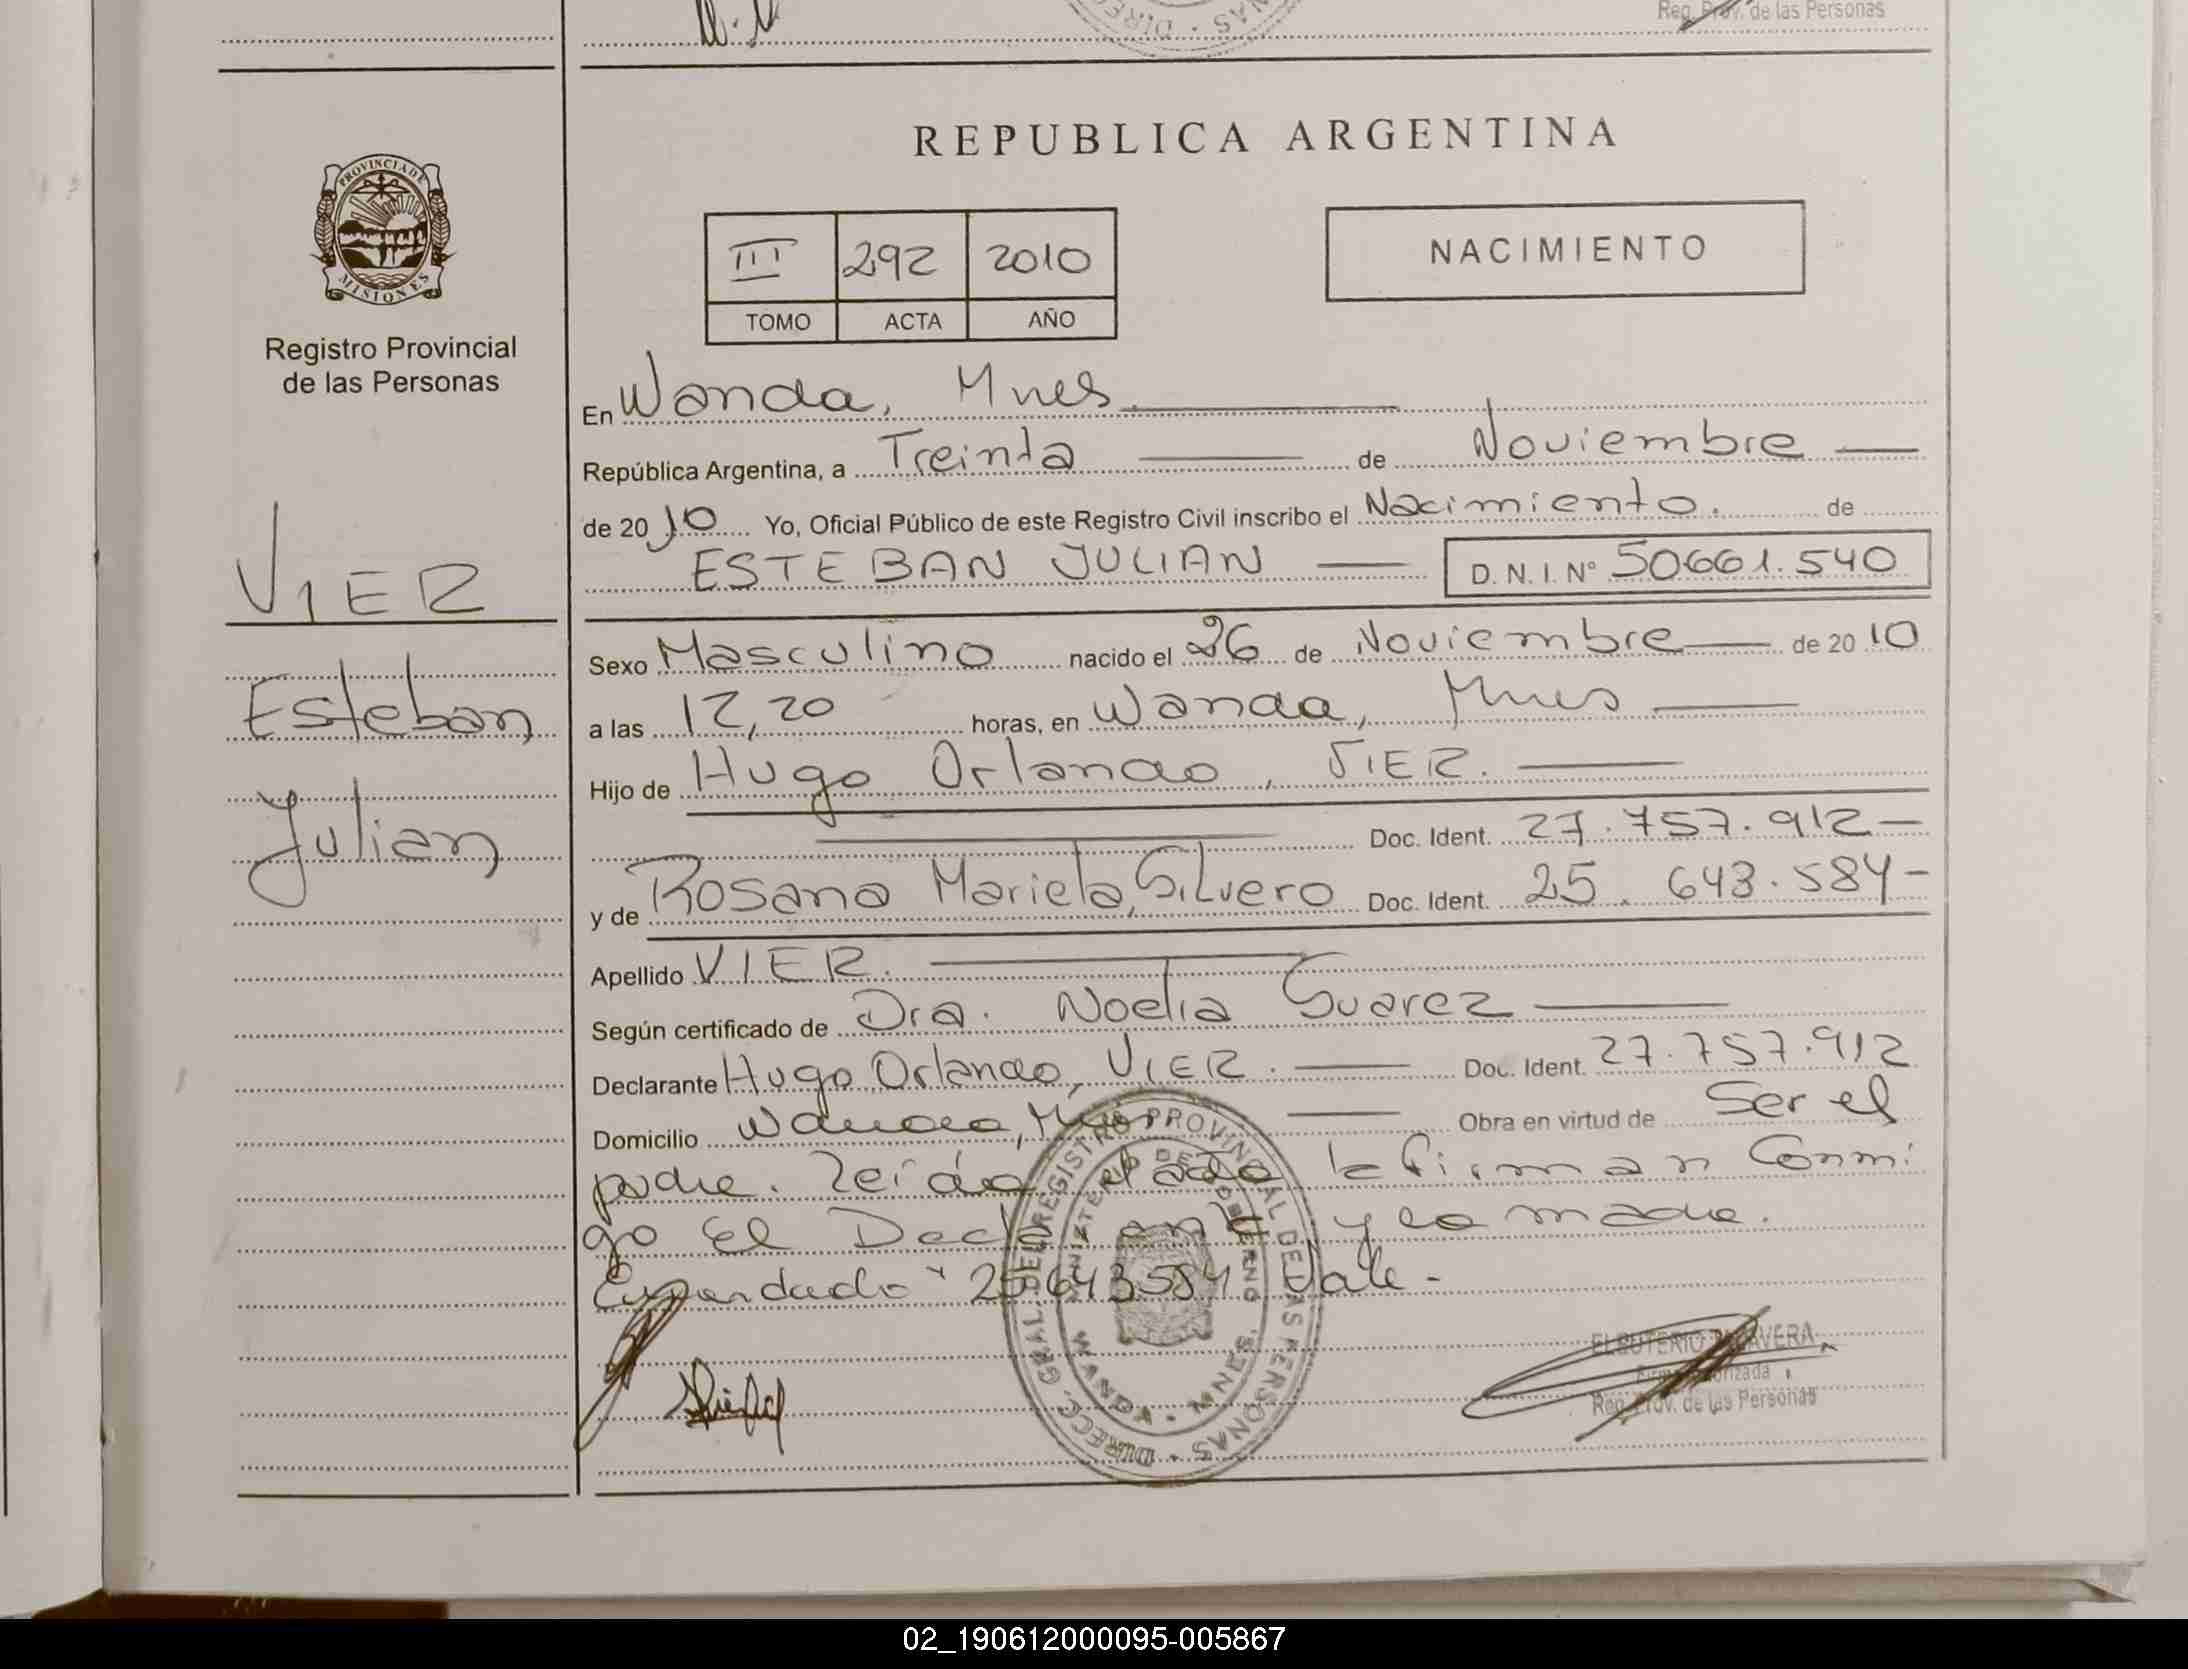 Reg. Prov. de las Personas
REPUBLICA ARGENTINA
PROVINCIA DE
MISIONES
Registro Provincial
de las Personas
III 292 2010
TOMO ACTA AÑO
NACIMIENTO
En Wanda, Mnes.
República Argentina, a Treinta de Noviembre
de 2010 Yo, Oficial Público de este Registro Civil inscribo el Nacimiento. de
ESTEBAN JULIAN D.N.I. Nº 50661.540
VIER
Esteban
Julian
Sexo Masculino nacido el 26 de Noviembre de 2010
a las 12,20 horas, en Wanda, Mnes
Hijo de Hugo Orlando, VIER.
Doc. Ident. 27.757.912-
y de Rosana Mariela, Silvero Doc. Ident. 25.643.584-
Apellido VIER.
Según certificado de Dra. Noelia Suarez
Declarante Hugo Orlando, VIER. Doc. Ident. 27.757.912
Domicilio Wanda, Mnes Obra en virtud de Ser el
padre. Leída el acta la firman Conmi
go el Declarante y la madre.
Enmendado "25643584 Vale-
DIRECC. GRAL. DEL REGISTRO PROVINCIAL DE LAS PERSONAS
MINISTERIO DE GOBIERNO
WANDA - MNES.
ELEUTERIO TALAVERA
Firma Autorizada
Reg. Prov. de las Personas
02_190612000095-005867